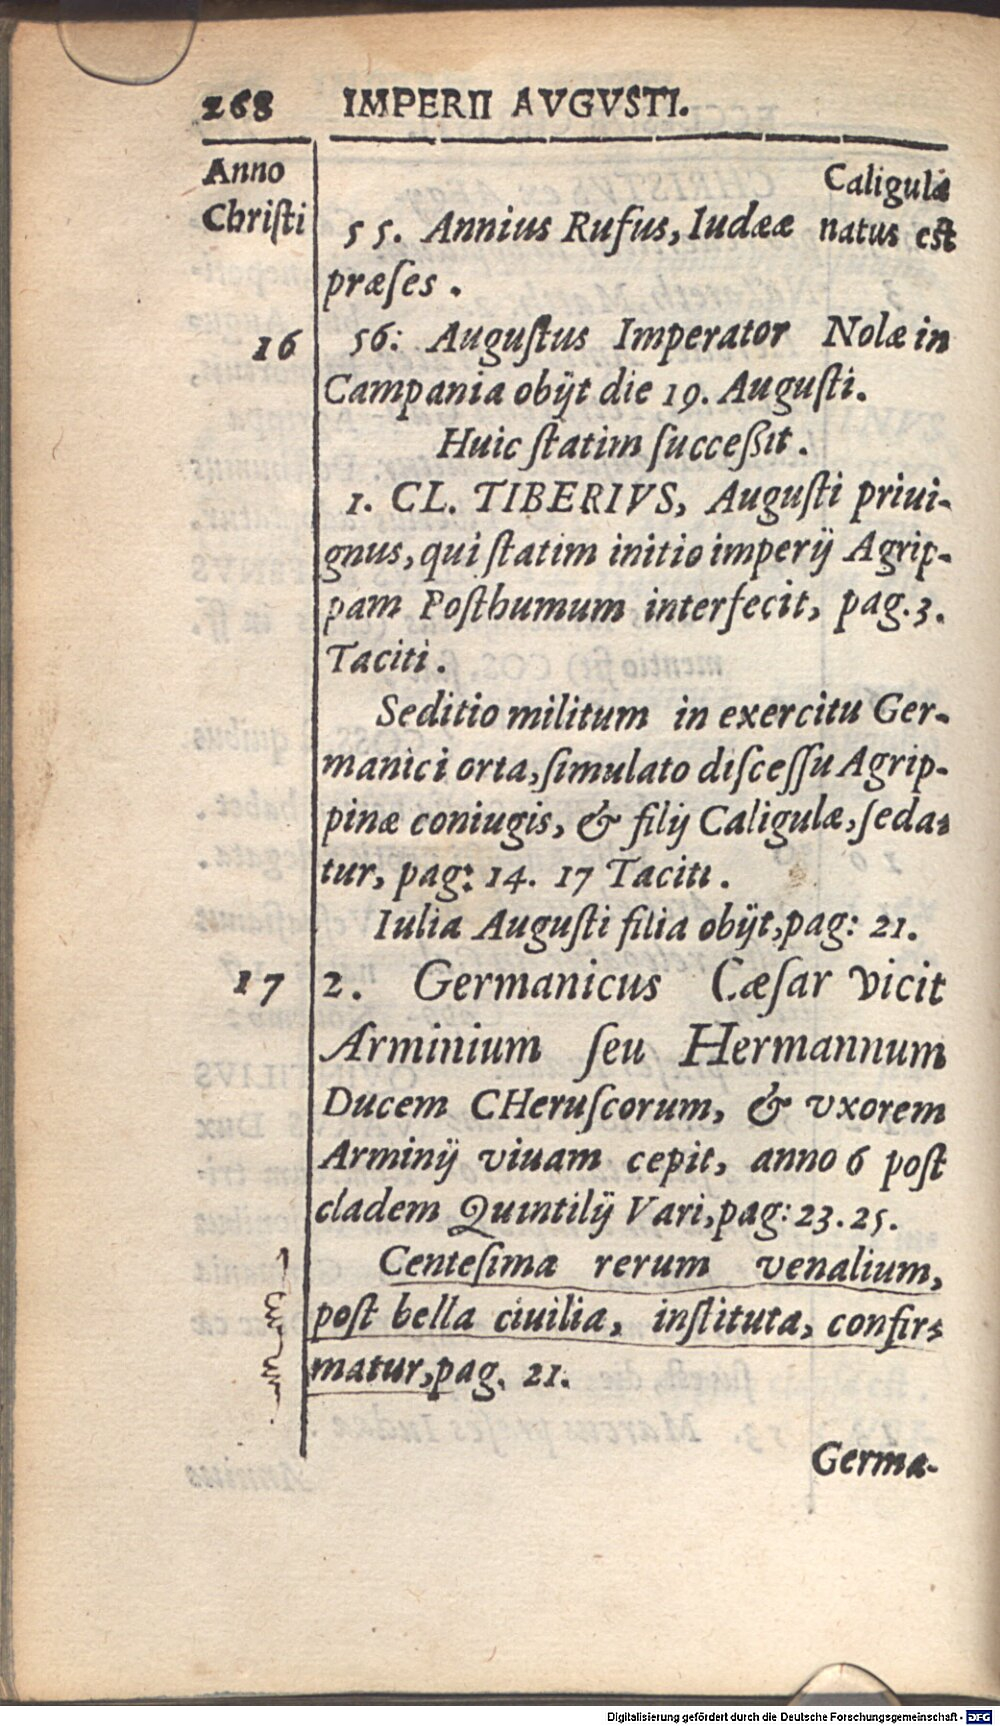 268 IMPERII AVGVSTI.
Anno
Christi
Caligulæ
natus est
55. Annius Rufus, Iudææ
præſes.
16
56: Auguſtus Imperator Nolæ in
Campania obijt die 19. Auguſti.
Huic ſtatim ſucceßit.
1. CL. TIBERIVS, Auguſti priui-
gnus, qui ſtatim initio imperij Agrip-
pam Poſthumum interfecit, pag. 3.
Taciti.
Seditio militum in exercitu Ger-
manici orta, ſimulato diſceſſu Agrip-
pinæ coniugis, & filij Caligulæ, ſeda-
tur, pag: 14. 17 Taciti.
Iulia Auguſti filia obijt, pag: 21.
17
2. Germanicus Cæſar vicit
Arminium ſeu Hermannum
Ducem CHeruſcorum, & vxorem
Arminij viuam cepit, anno 6 poſt
cladem Quintilij Vari, pag: 23. 25.
Centeſima rerum venalium,
poſt bella ciuilia, inſtituta, confir-
matur, pag. 21.
Germa-
Digitalisierung gefördert durch die Deutsche Forschungsgemeinschaft - DFG